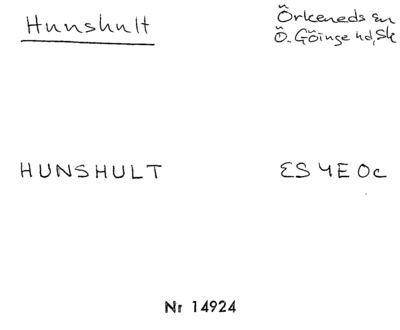 Hunshult
Örkeneds sn
Ö. Göinge hd, Sk
HUNSHULT
ES 4E 0c
Nr 14924